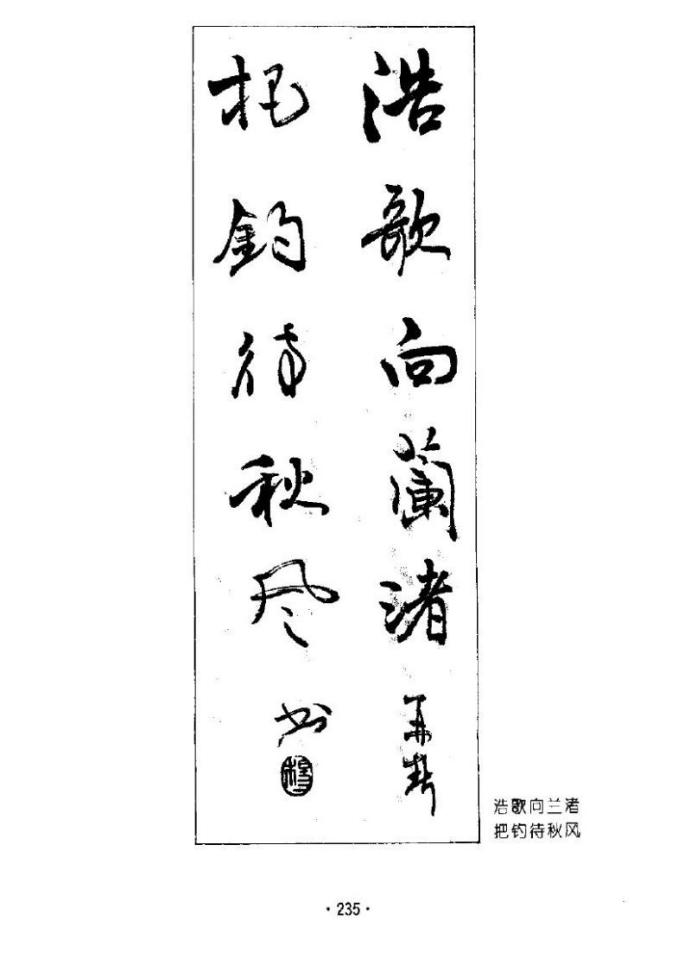 浩歌向蘭渚
把釣待秋风
书
浩歌向兰渚
把钓待秋风
·235·